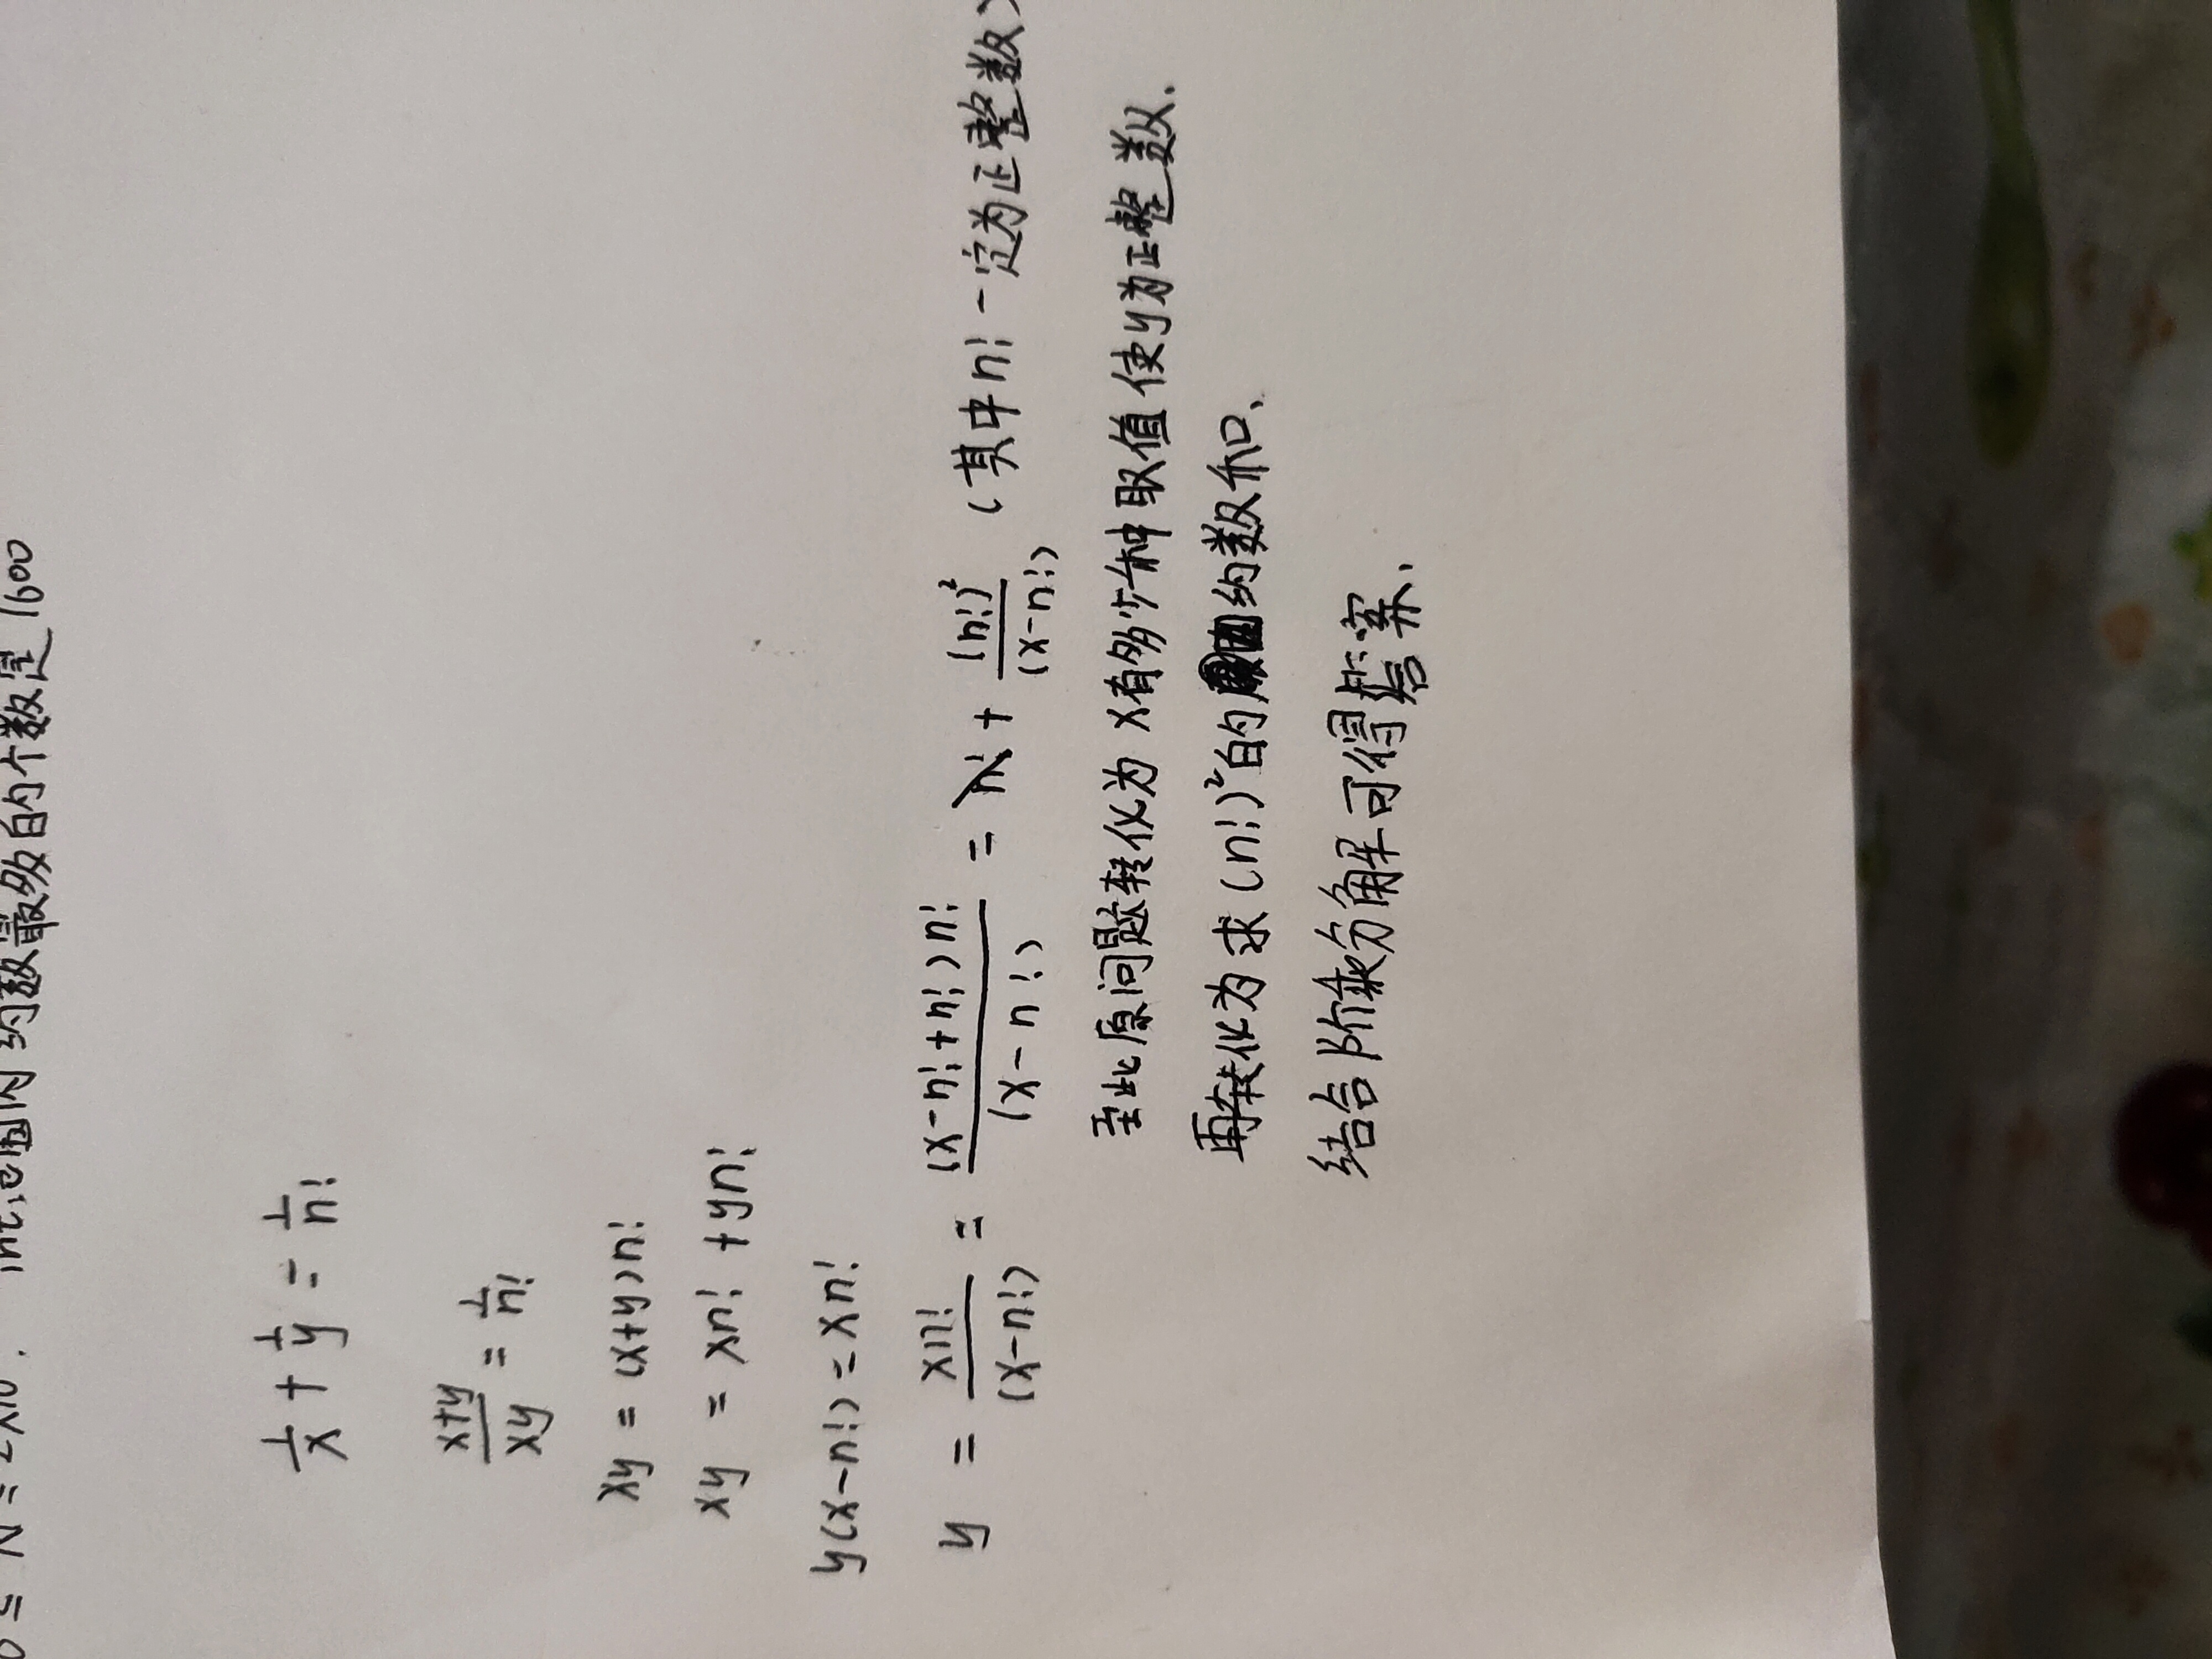 0≤N≤2×10⁹. int范围内约数最多的个数是1600
1/x + 1/y = 1/n!
x+y/xy = 1/n!
xy = (x+y)n!
xy = xn! + yn!
y(x-n!) = xn!
y = xn!/(x-n!) = (x-n!+n!)n!/(x-n!) = n! + (n!)²/(x-n!) (其中n!一定为正整数)
至此原问题转化为x有多少种取值使y为正整数.
再转化为求(n!)²的约数和.
结合阶乘分解可得答案.